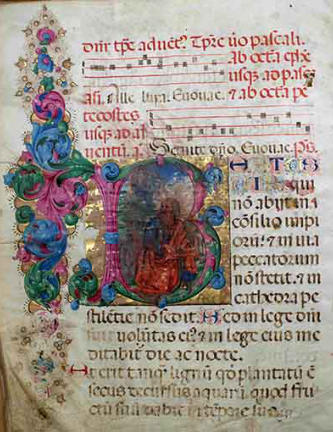 dnir tp̄e aduēt? Tp̄re ūo pascali.
Ab octa
usq; ad pasc
Alleluia. Euouae. & ab octa pe
tecostes
usq; ad ad
uentū. Seruite dn̄o. Euouae. Ps.
B EATUS
qui
nō abijt in
cōsilio impi
oru: & in uia
peccatorum
nō stetit. & in
cathedra pe
stilētie nō sedit. Sed in lege dn̄i
uolūtas ei?: & in lege eius me
ditabit die ac nocte.
Et erit tanq; lignū qd̄ plantatū ē
secus decursus aquarū: quod fru
ctū suū dabit in tēpore suo.